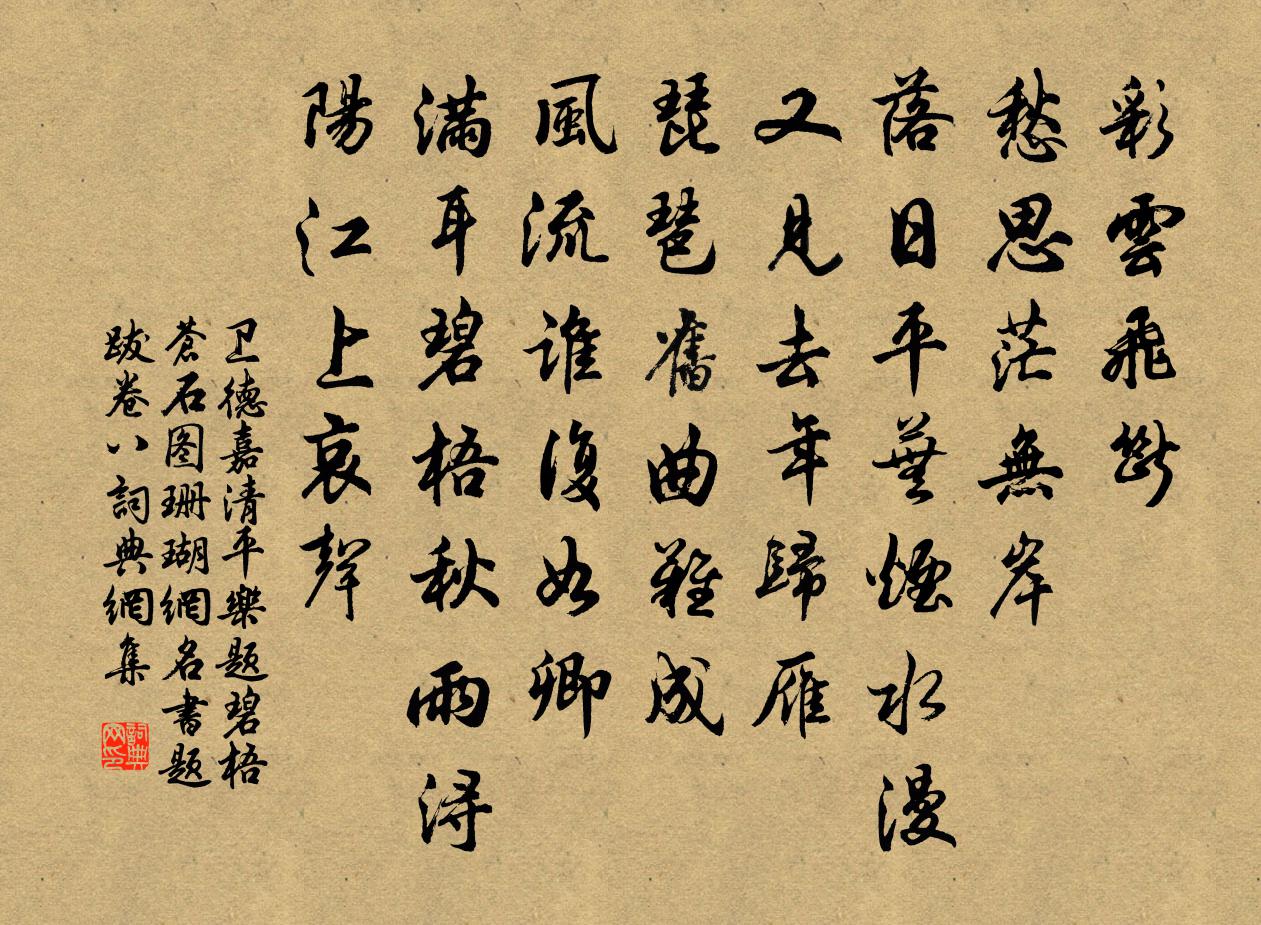 彩雲飛斷
愁思茫無岸
落日平蕪煙水漫
又見去年歸雁
琵琶舊曲難成
風流誰復如卿
滿耳碧梧秋雨潯
陽江上哀聲
卫德嘉清平樂題碧梧
蒼石图珊瑚網名書题
跋卷八詞典網集
詞典网印